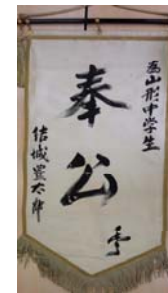 為山形中学生
奉公
結城豊太郎